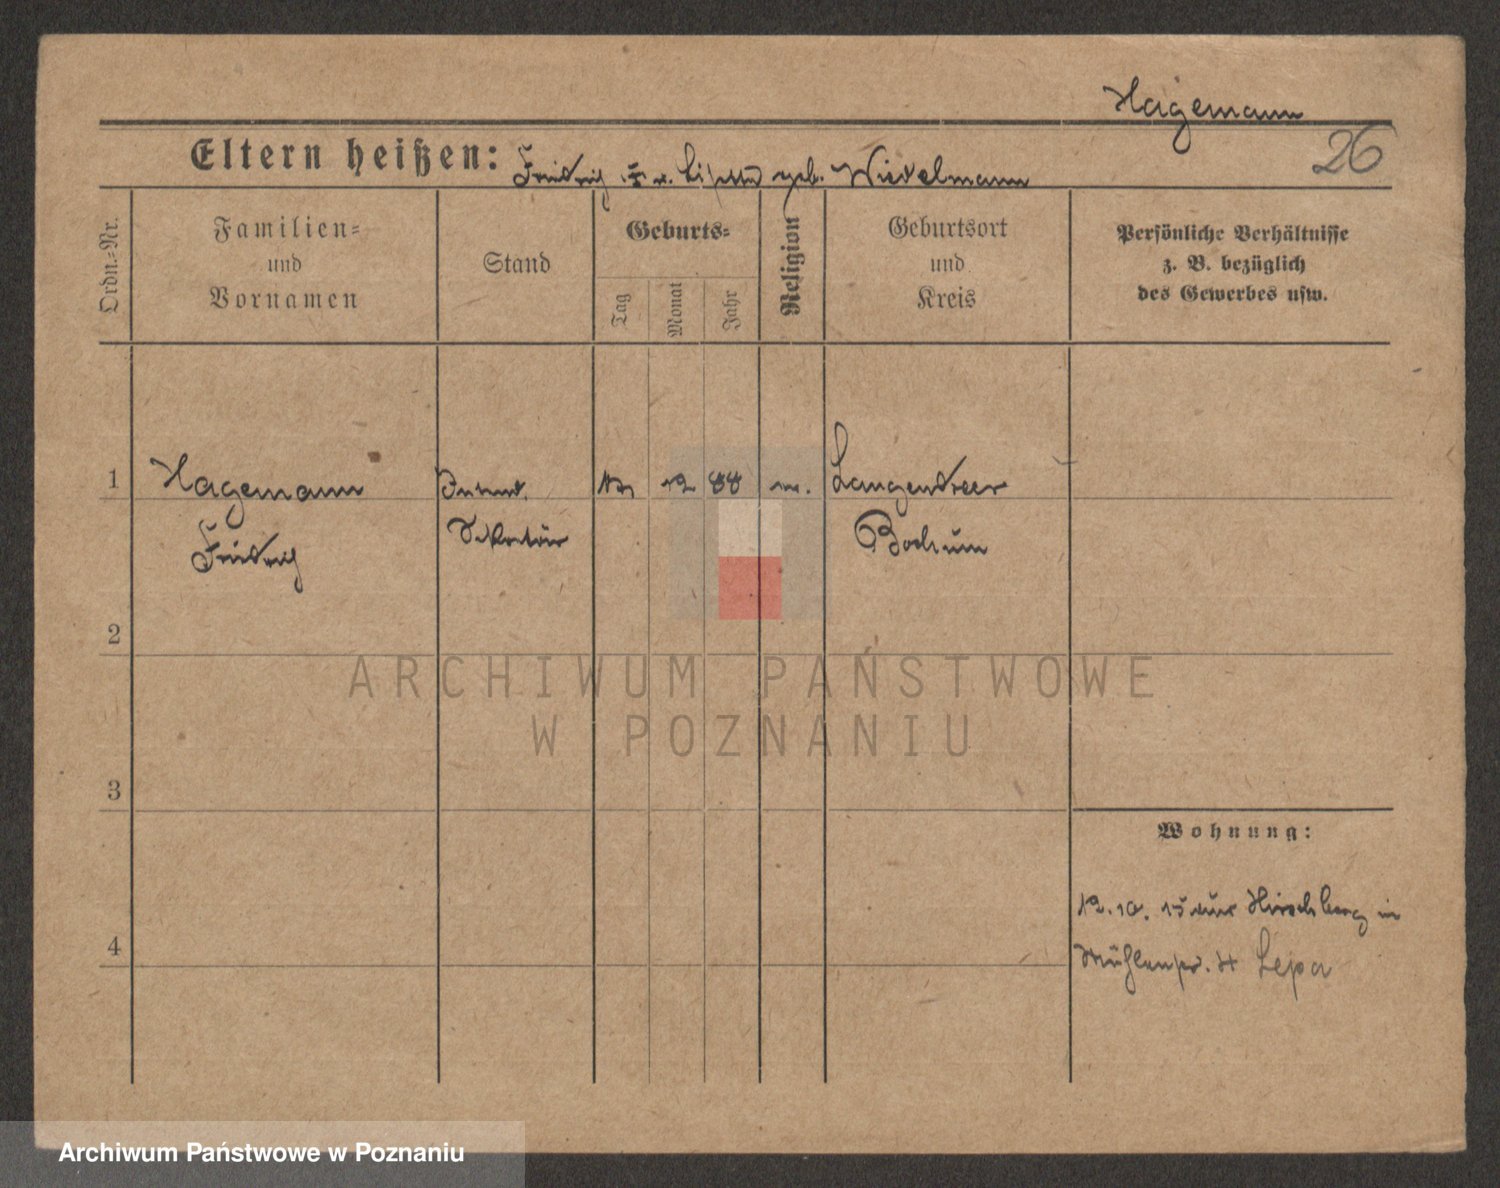 Hagemann
26
Eltern heißen: Friedrich u. geb. Wiedelmann
Ordn.-Nr.
Familien-
und
Vornamen
Stand
Geburts-
Tag
Monat
Jahr
Religion
Geburtsort
und
Kreis
Persönliche Verhältnisse
z. B. bezüglich
des Gewerbes usw.
1 Hagemann 12 88 Langendreer
Friedrich Sekretär Bochum
2
3
4
ARCHIWUM PAŃSTWOWE
W POZNANIU
Wohnung:
12.10.15 aus Hirschberg in
Mühlenstr. Lepa
Archiwum Państwowe w Poznaniu